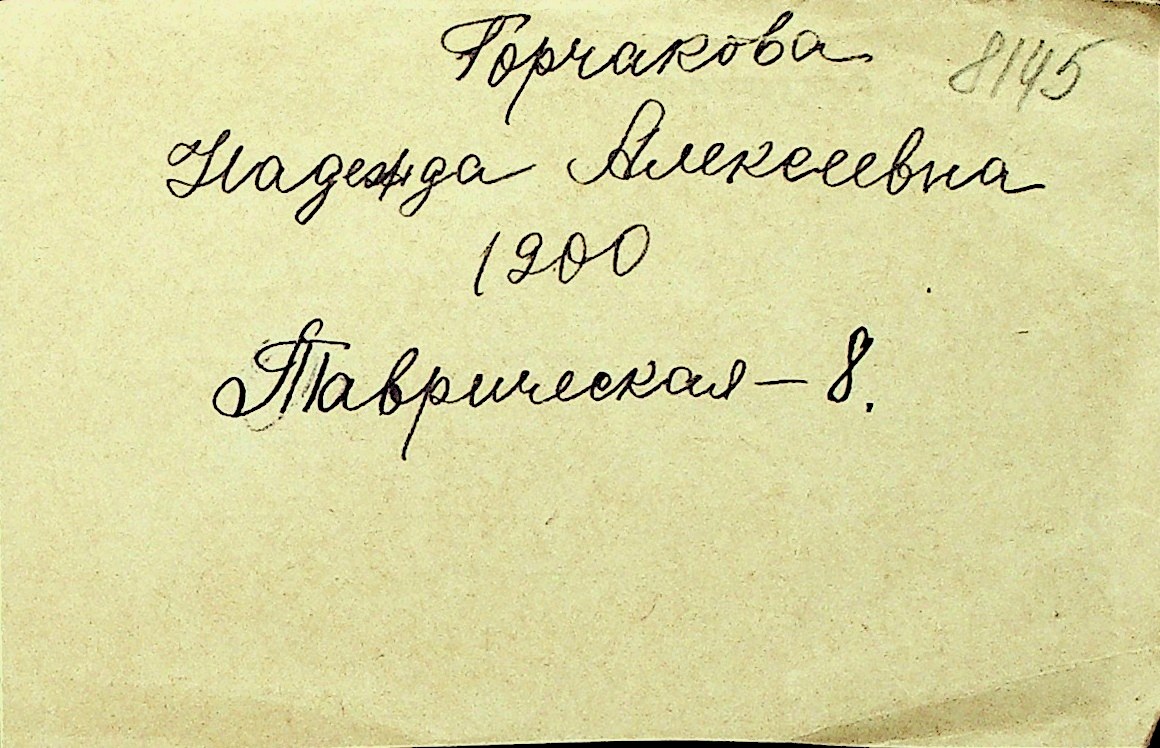 Горчакова 8145
Надежда Алексеевна
1900
Таврическая - 8.